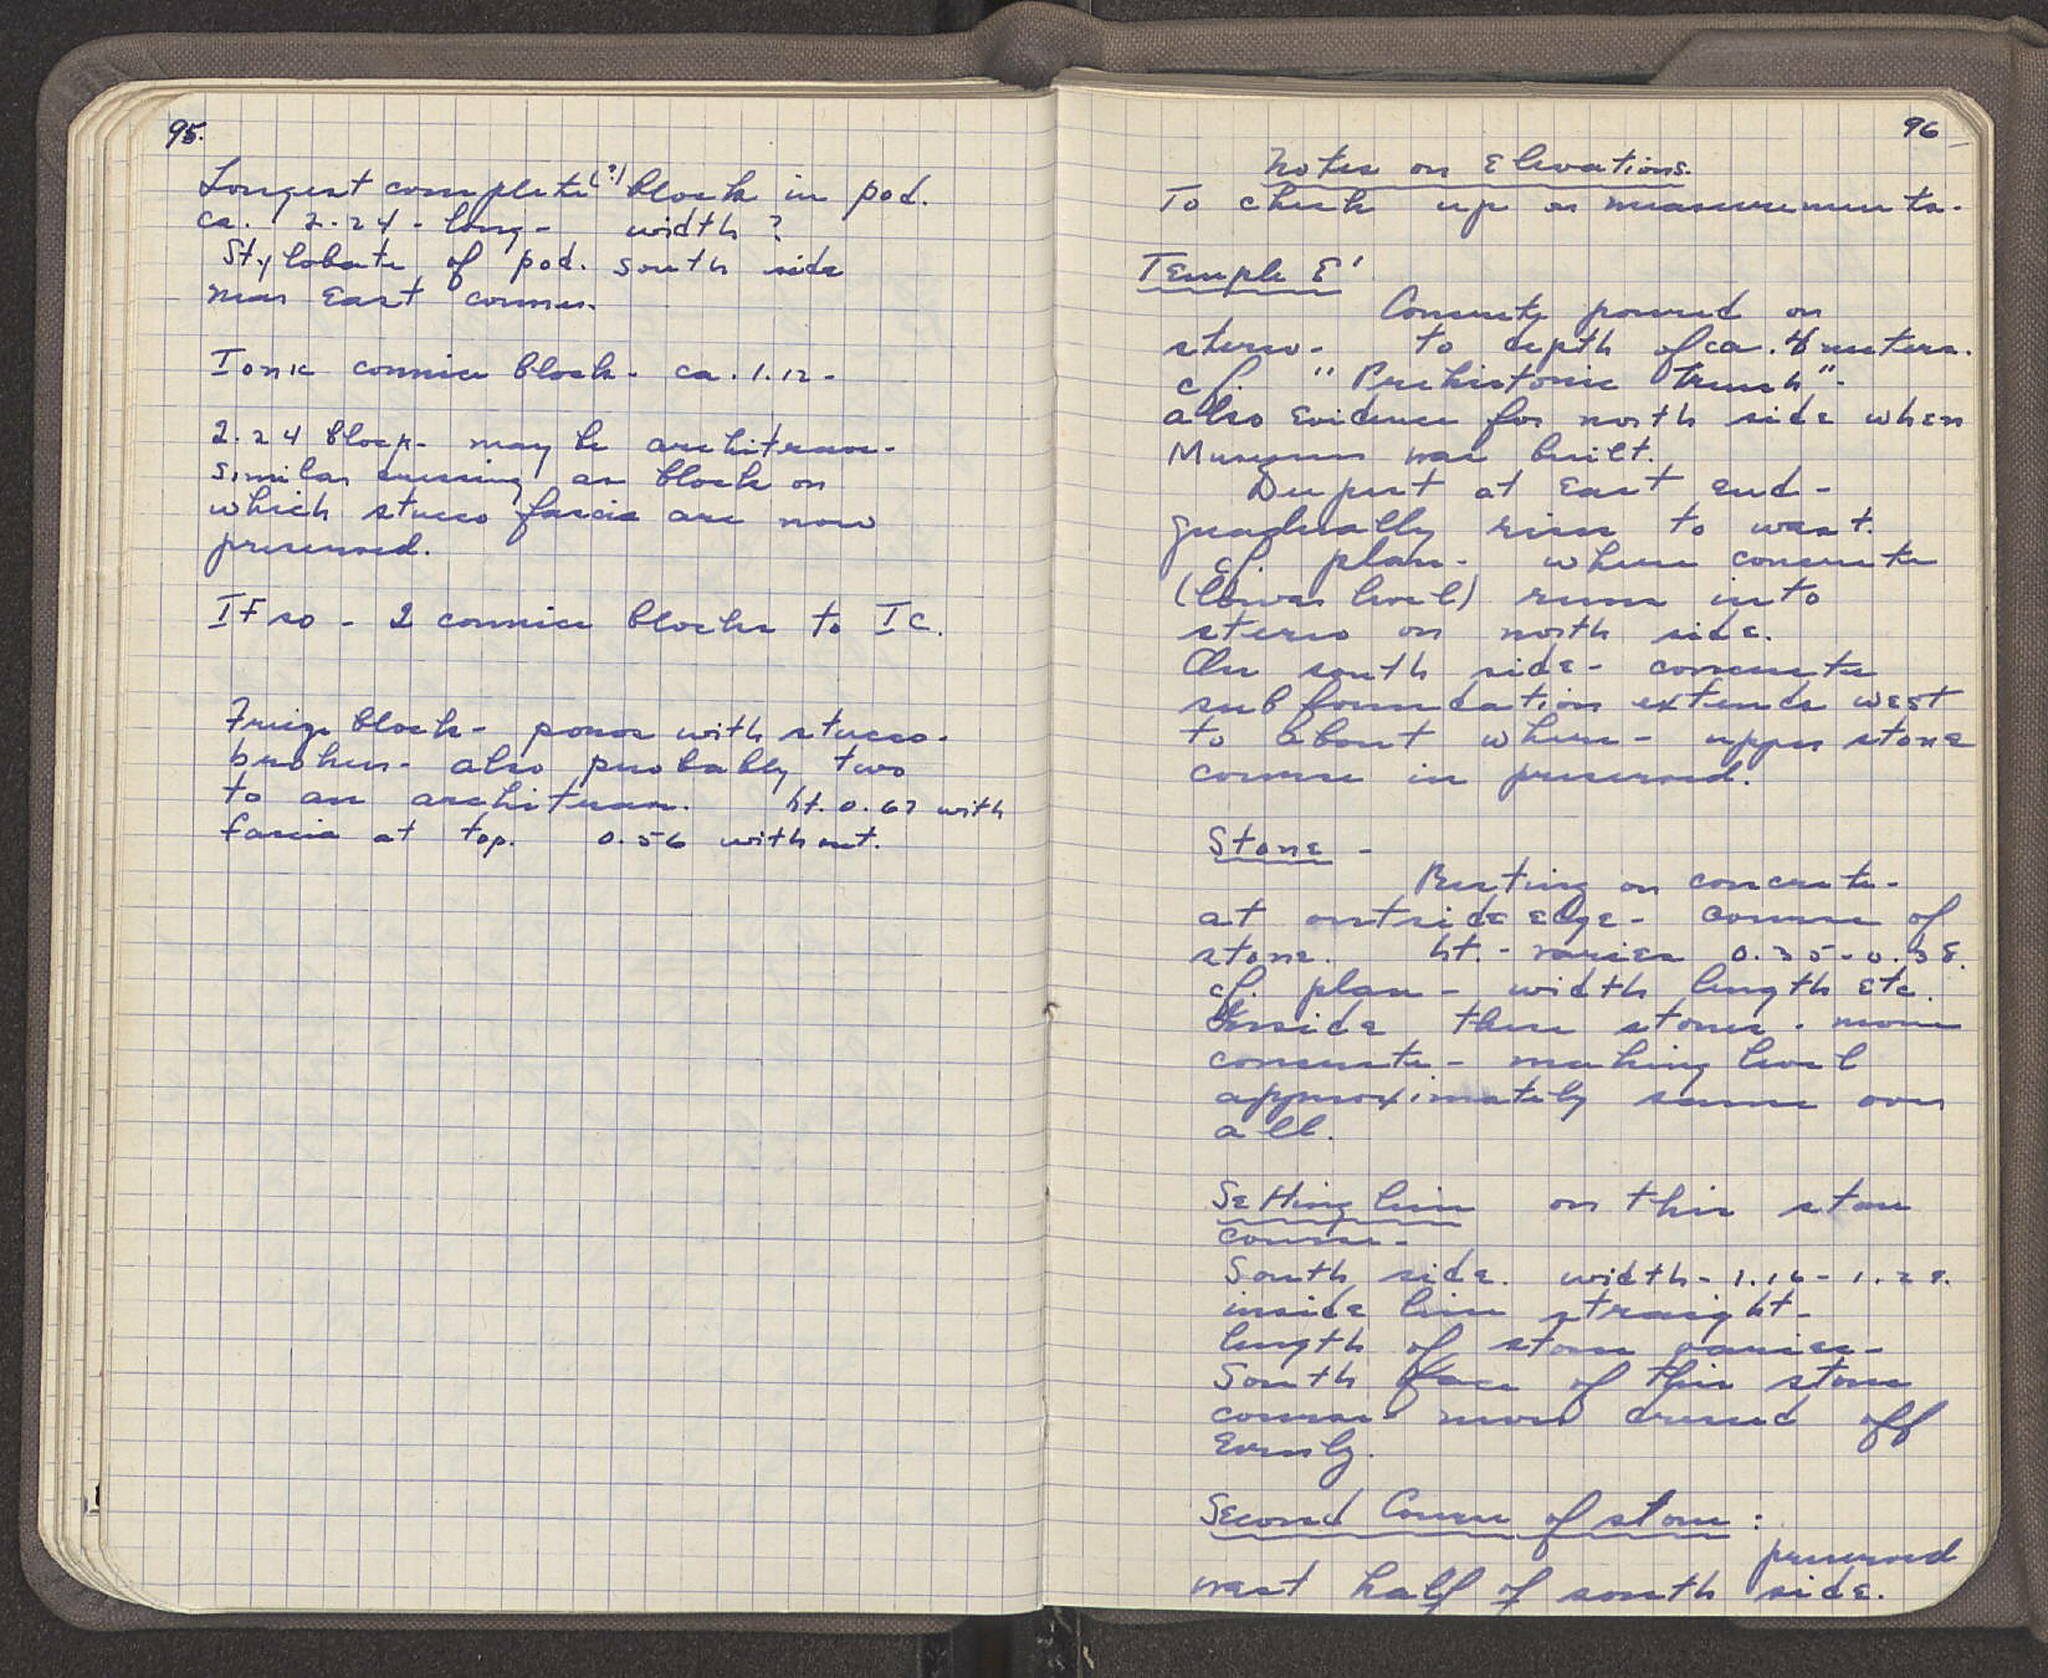 95.
Longest complete (?) block in pod.
ca. 2.24 - long - width ?
Stylobate of pod. South side
near East corner.
Ionic cornice block - ca. 1.12 -
2.24 block - may be architrave -
similar dressing as block on
which stucco fascia are now
preserved.
If so - 2 cornice blocks to IC.
Frieze block - poros with stucco -
broken - also probably two
to an architrave. ht. 0.67 with
fascia at top. 0.56 without.
96
Notes on Elevations.
To check up on measurements -
Temple E'
Concrete poured on
stereo - to depth of ca. 4 meters.
cf. "Prehistoric Trench" -
also Evidence for north side when
Museum was built.
Deepest at East end -
gradually rises to west.
cf. plan - where concrete
(lower level) runs into
stereo on north side.
On south side - concrete
sub foundation extends west
to about where - upper stone
course is preserved.
Stone -
Resting on concrete -
at outside edge - course of
stone. ht. - varies 0.35 - 0.38.
cf. plan - width length etc.
Inside these stones - more
concrete - making level
approximately same over
all.
Setting line on this stone
course -
South side. width - 1.16 - 1.28.
inside line straight -
length of stone varies -
South face of this stone
course - more dressed off
Evenly.
Second Course of stone :
preserved
west half of south side.